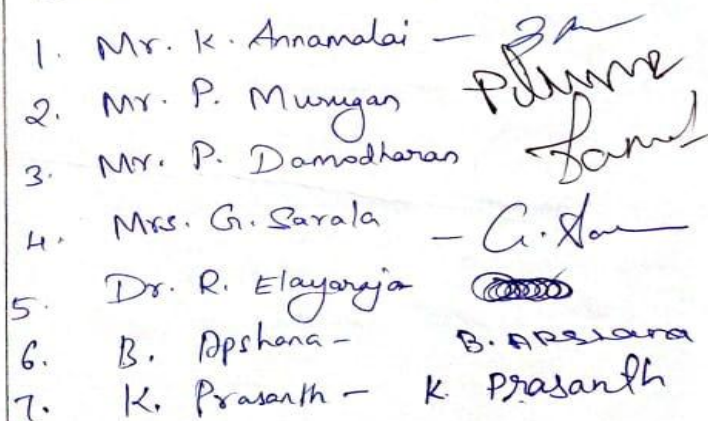 1. Mr. K. Annamalai -
2. Mr. P. Murugan
3. Mr. P. Damodharan
4. Mrs. G. Sarala - G. Sa
5. Dr. R. Elayaraja
6. B. Apshana - B. APSHANA
7. K. Prasanth - K Prasanth